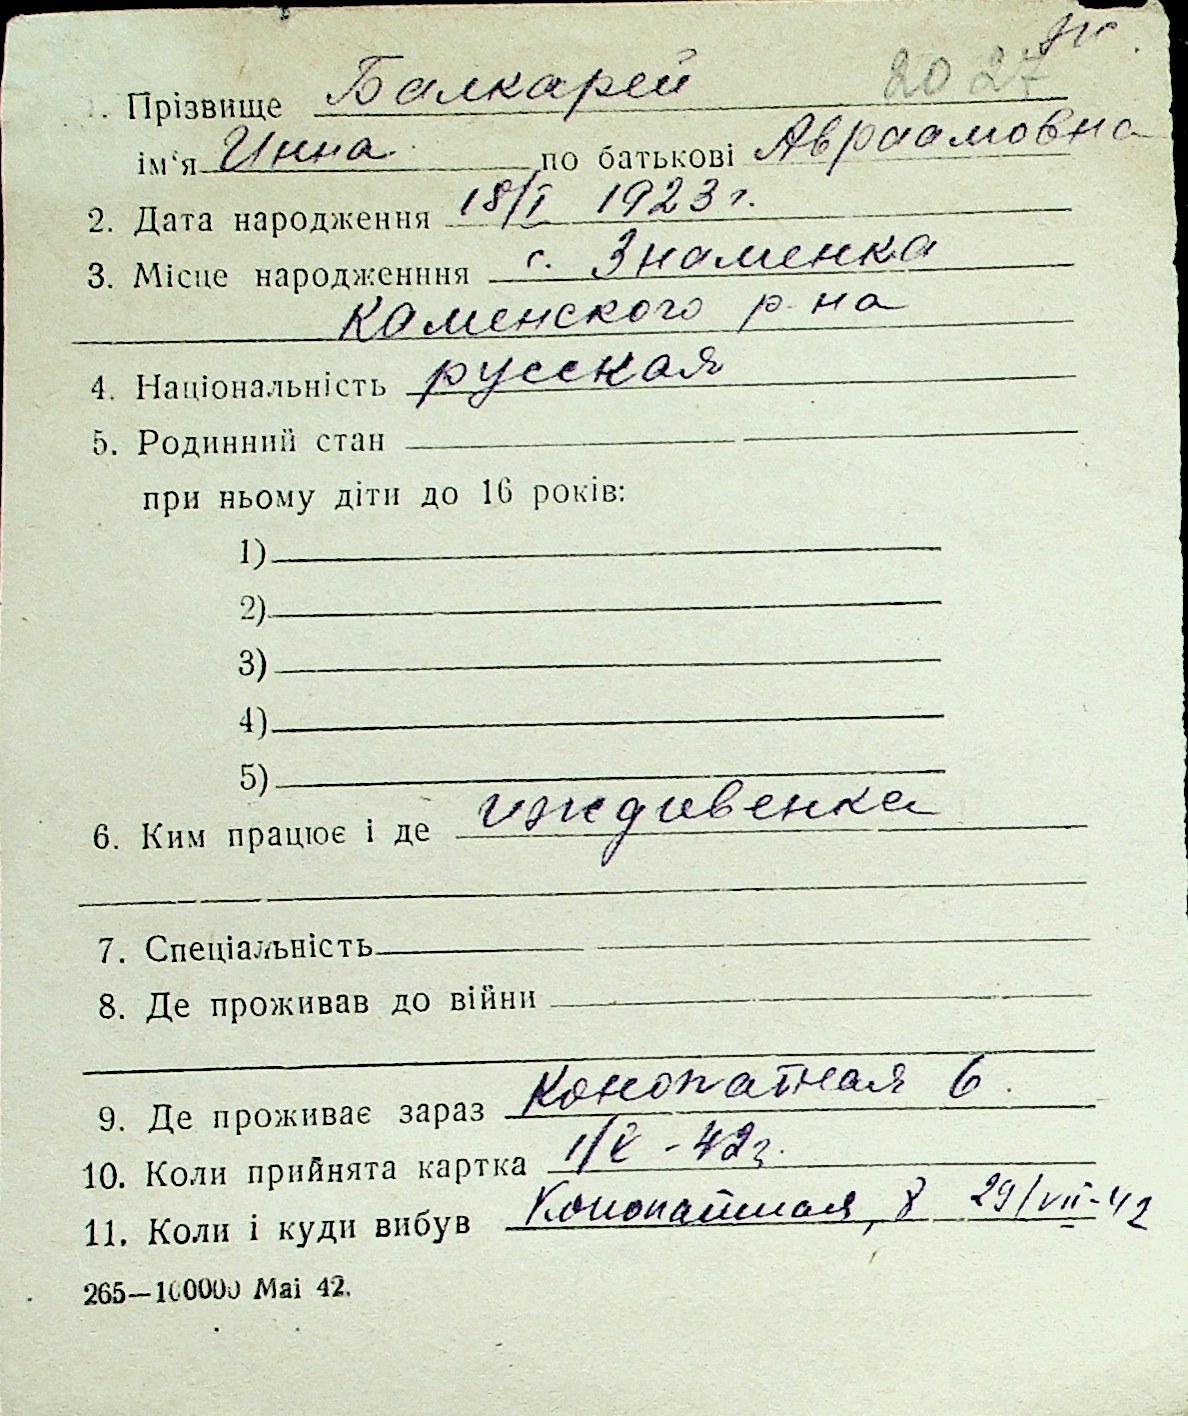 20 27
1. Прізвище Балкарей
ім‘я Инна по батькові Авраамовна
2. Дата народження 18/I 1923 г.
3. Місце народженння с. Знаменка
Каменского р-на
4. Національність русская
5. Родинний стан
при ньому діти до 16 років:
1)
2)
3)
4)
5)
6. Ким працює і де иждивенка
7. Спеціальність
8. Де проживав до війни
9. Де проживає зараз Конопатная 6.
10. Коли прийнята картка -42г.
11. Коли і куди вибув Конопатная, 8 29/VII-42
265—100000 Mai 42.